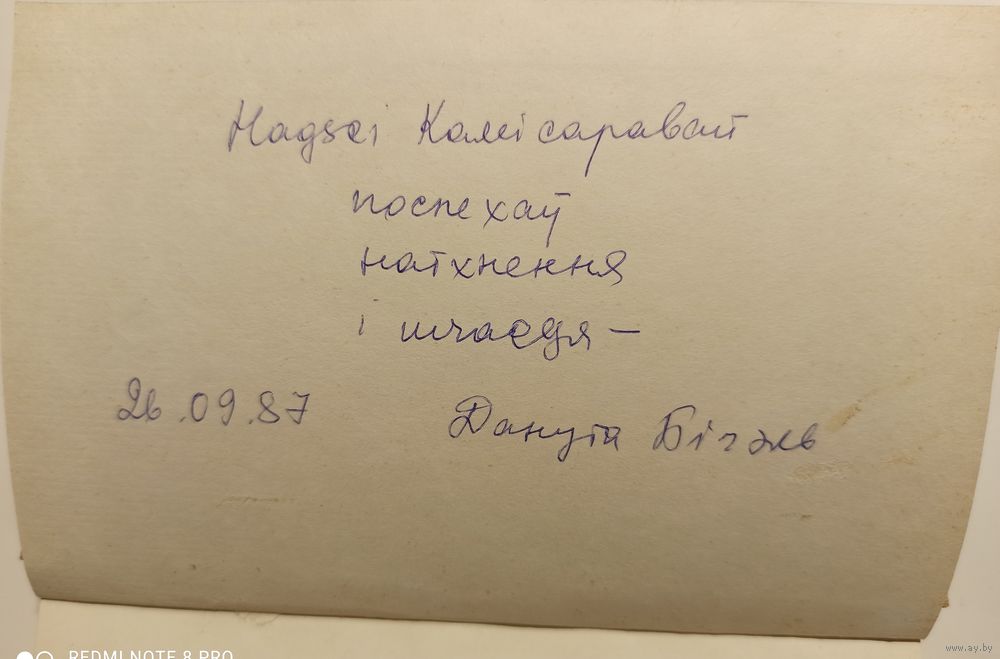 Надзеі Камісаравай
поспехаў
натхнення
і шчасця –
26.09.87 Данута Бічэль
REDMI NOTE 8 PRO
www.ay.by